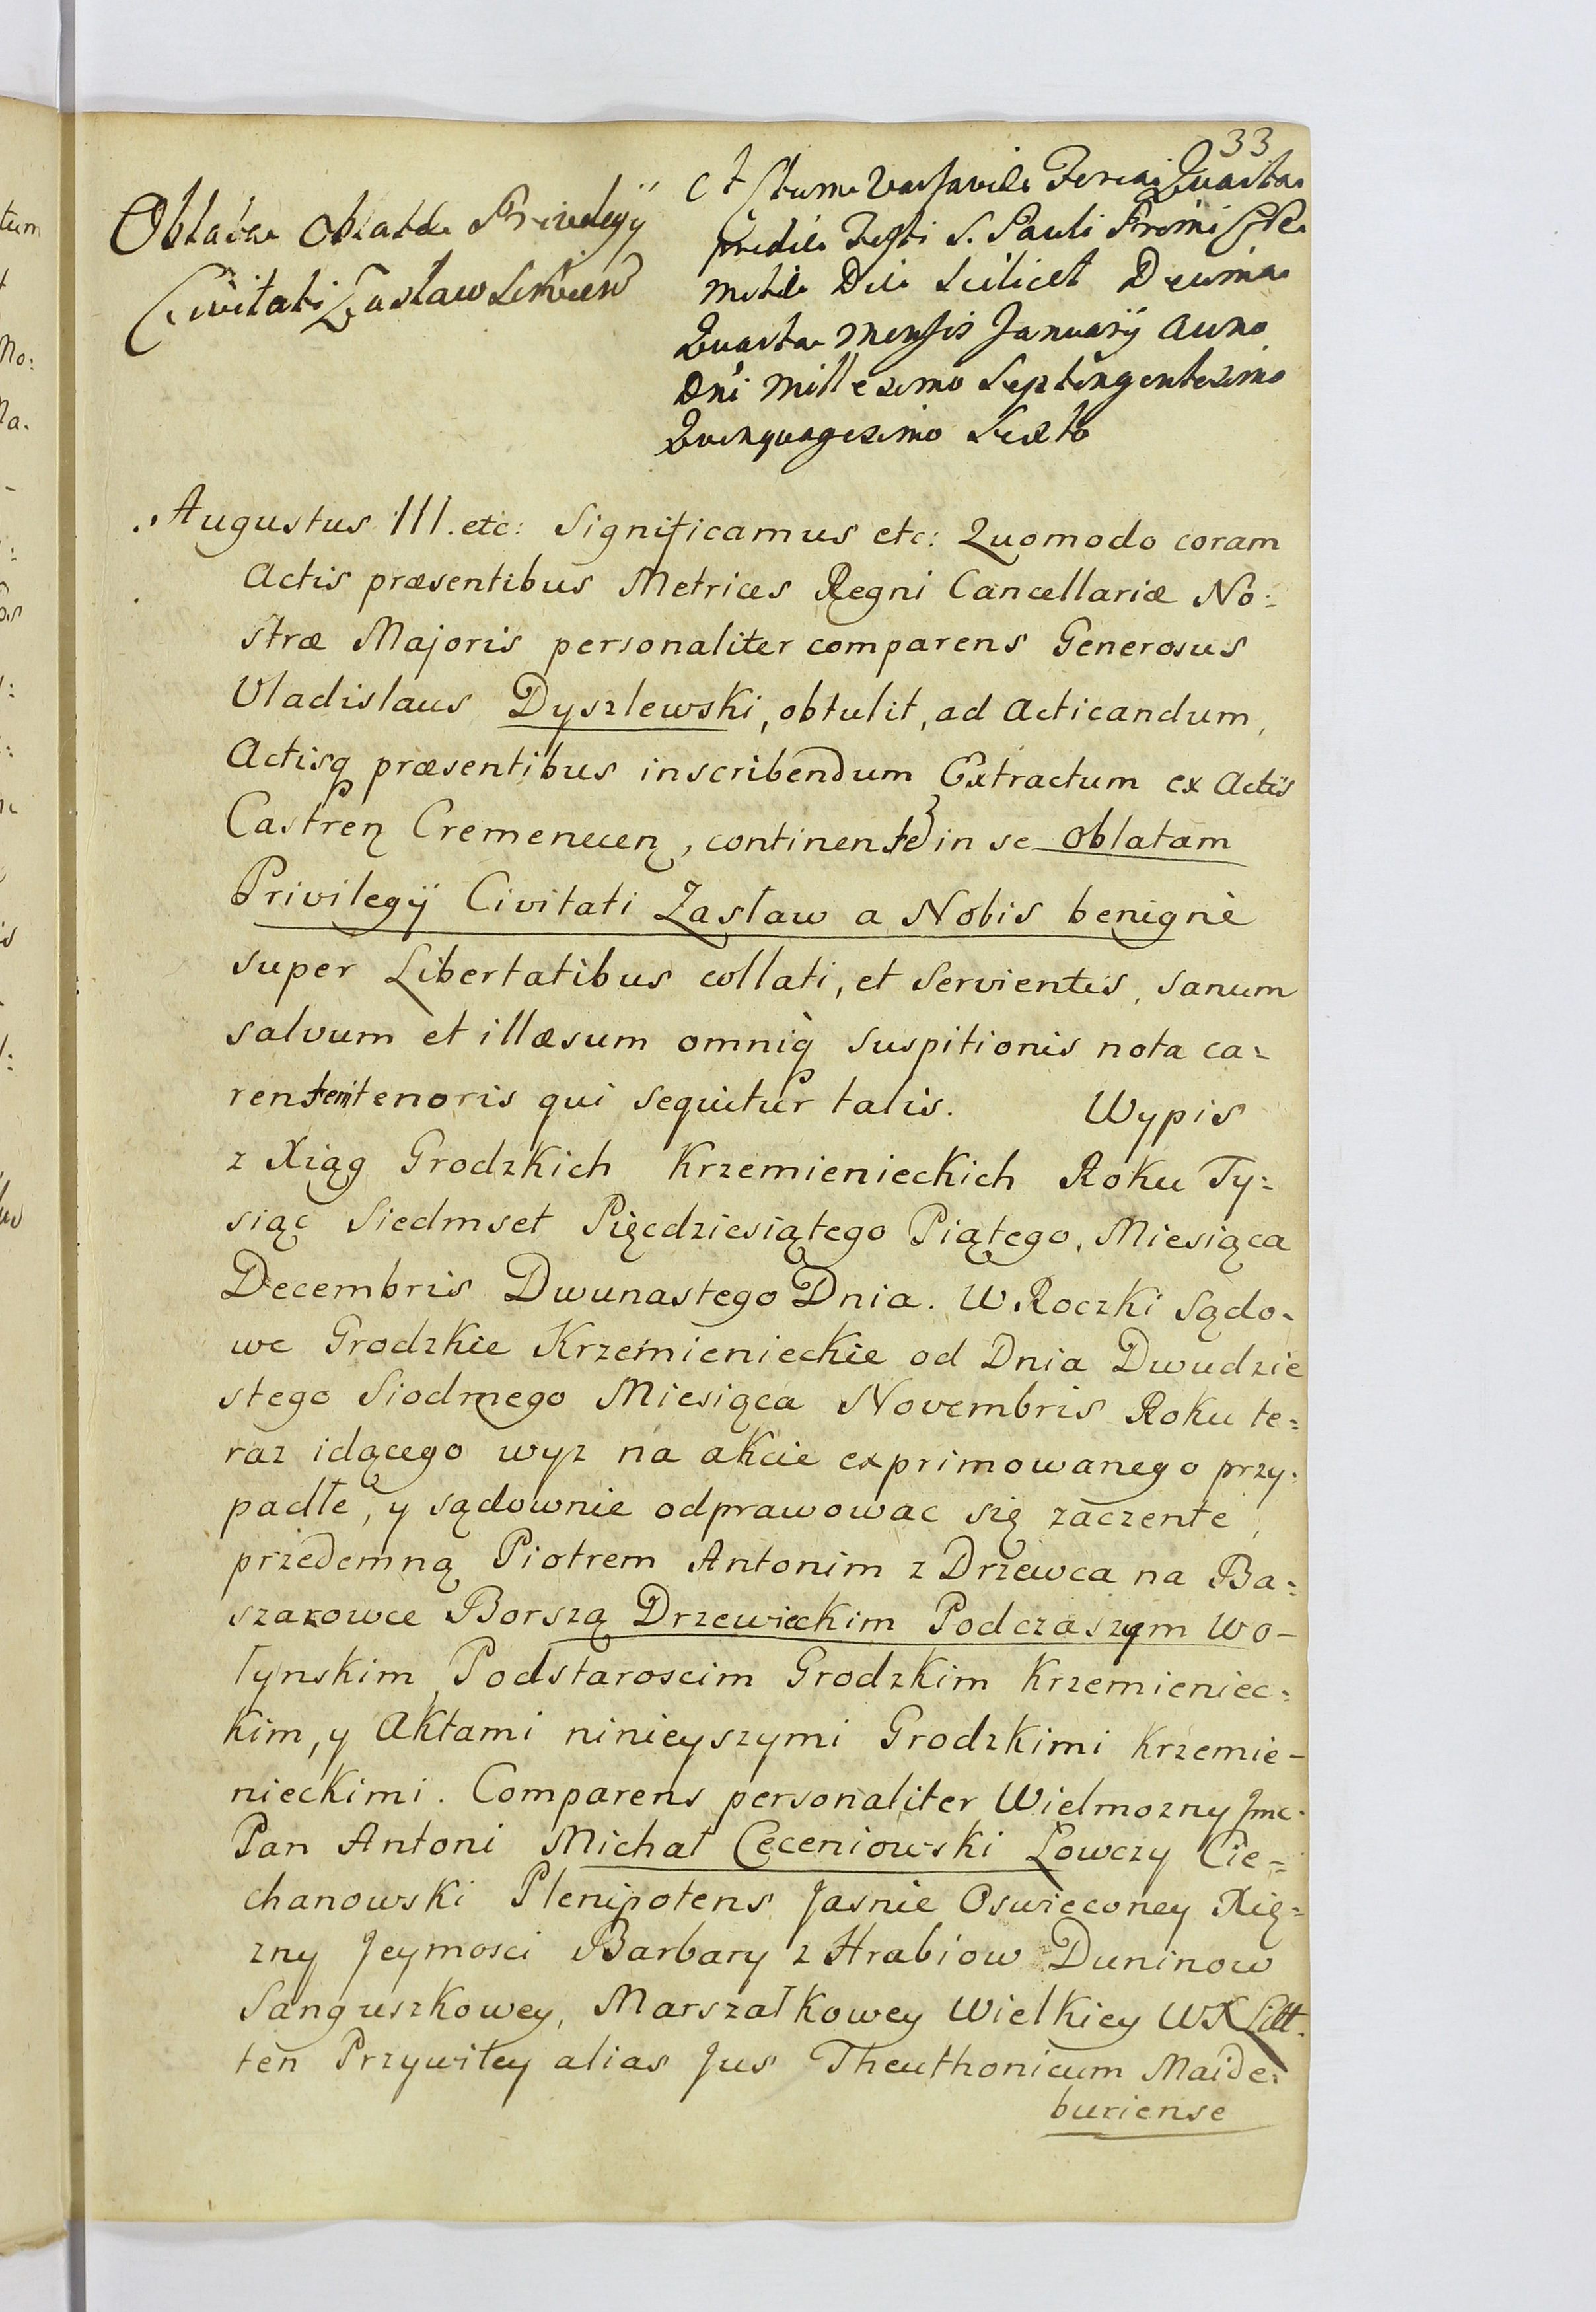 33
Oblata Oblatae Privilegÿ
Civitati Zaslaw Servien
Actum Varsaviae Feria Quarta
pridie Festi S. Pauli Primi Ere
mitae Die Scilicet Decima
Quarta mensis Januarÿ Anno
Dni Millesimo Septingentesimo
Quinquagesimo Sexto
Augustus III. etc: Significamus etc: Quomodo coram
Actis præsentibus Metrices Regni Cancellariæ No:
stræ Majoris personaliter comparens Generosus
Vladislaus Dyszlewski, obtulit, ad Acticandum,
Actisq præsentibus inscribendum Extractum ex Actis
Castren Cremenecen, continentem in se Oblatam
Privilegÿ Civitati Zasław a Nobis benignè
super Libertatibus collati, et Servientis, sanum
salvum et illæsum omniq suspitionis nota ca=
rentem tenoris qui sequitur talis. Wypis
z Xiąg Grodzkich Krzemienieckich Roku Ty=
siąc Siedmset Pięcdziesiątego Piątego, Miesiąca
Decembris Dwunastego Dnia. W Roczki Sądo-
we Grodzkie Krzemienieckie od Dnia Dwudzie
stego Siodmego Miesiąca Novembris Roku te=
raz idącego wyz na akcie exprimowanego przy:
padłe, y sądownie odprawowac się zaczente,
przedemną Piotrem Antonim z Drzewca na Ba=
szarowce Borszą Drzewieckim Podczaszym Wo-
łynskim, Podstaroscim Grodzkim Krzemieniec=
kim, y Aktami ninieyszymi Grodzkimi Krzemie-
nieckimi. Comparens personaliter Wielmozny Jmc.
Pan Antoni Michał Ceceniowski Łowczy Cie=
chanowski Plenipotens Jasnie Oswieconey Xię=
zny Jeymosci Barbary z Hrabiow Duninow
Sanguszkowey, Marszałkowey Wielkiey WX Litt.
ten Przywiley alias Jus Theuthonicum Maide:
buriense